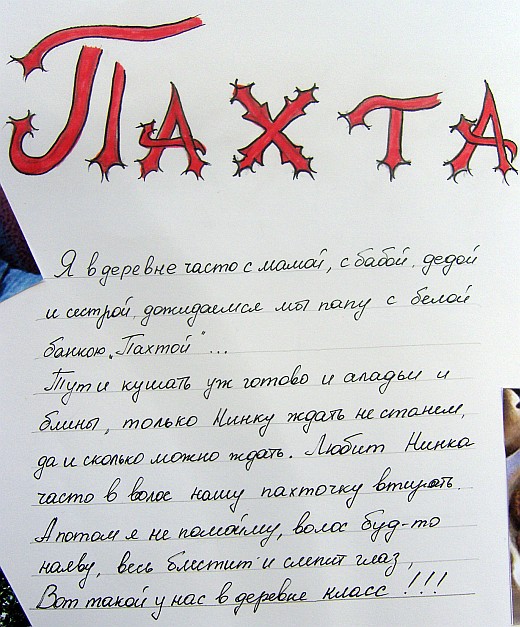 ПАХТА
Я в деревне часто с мамой, с бабой, дедой
и сестрой, дожидаемся мы папу с белой
банкою „Пахтой" ...
Тут и кушать уж готово и аладьи и
блины, только Нинку ждать не станем,
да и сколько можно ждать. Любит Нинка
часто в волос нашу пахточку втирать.
А потом я не помойму, волос буд-то
наяву, весь блестит и слепит глаз,
Вот такой у нас в деревне класс !!!